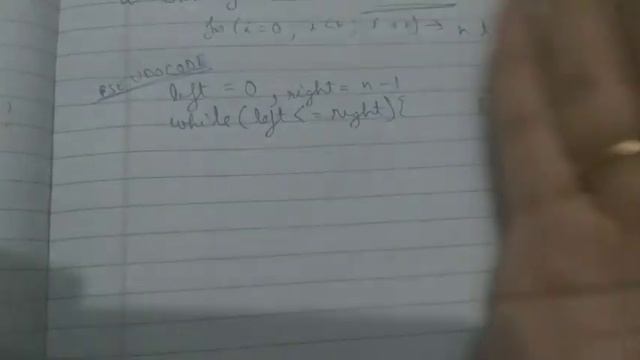 for (i=0, i<n; i++) → n
PSEUDOCODE
left = 0, right = n-1
while (left <= right) {